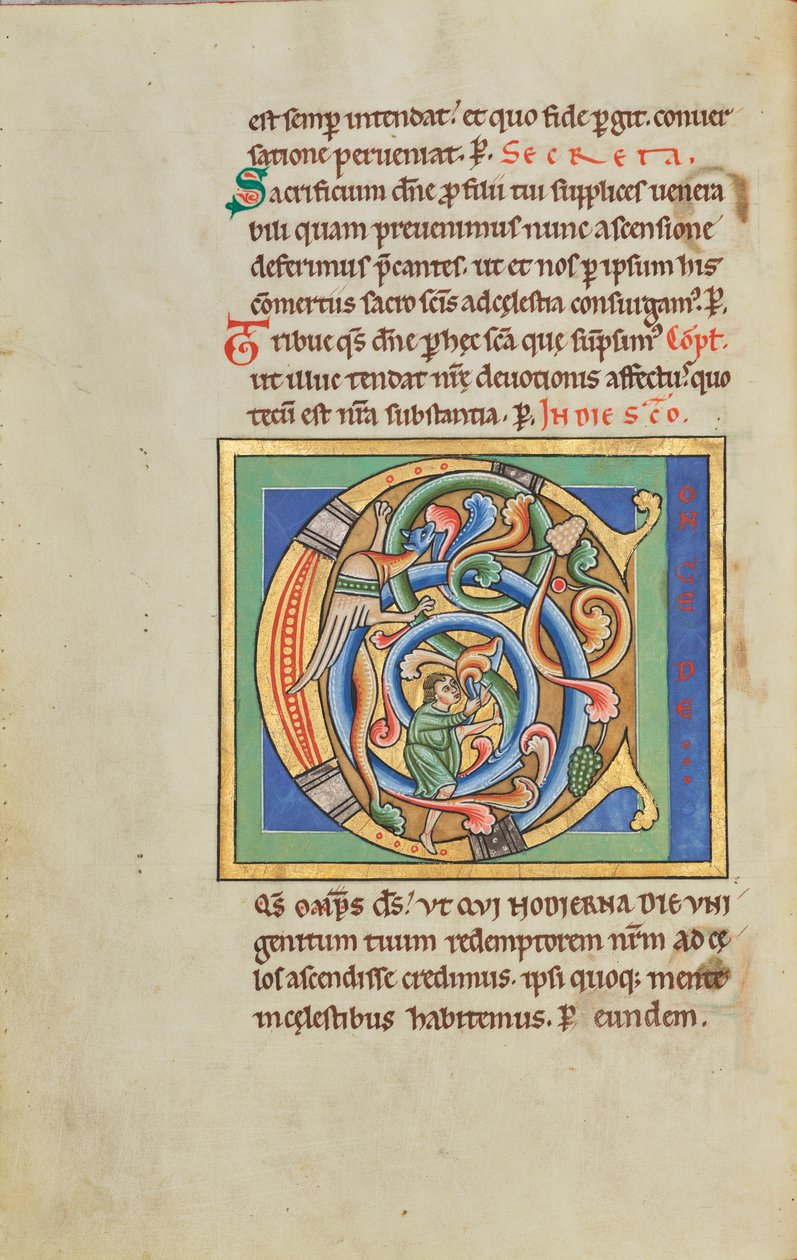 est semꝑ intendat. et quo fide ꝑgit. conuer
satione perueniat. P̱. Secreta.
Sacrificium dn̄e ꝓ filii tui supplices uenera
bili quam preuenimus nunc ascensione
deferimus p̄cantes. ut et nos ꝑ ipsum his
cōmertiis sacro scīs ad cęlestia consurgamꝰ. P̱.
Tribue qs̄ dn̄e ꝑ hęc sc̄a quę sūpsimꝰ Cōpꝉ.
ut illuc tendat nr̄ę deuotionis affectuꝰ quo
tecū est nr̄a substantia. P̱. In die sc̄o.
CONCEDE
Qs̄ om̄ps ds̄. ut qui hodierna die uni
genitum tuum redemptorem nr̄m ad cę
los ascendisse credimus. ipsi quoq; mente
in cęlestibus habitemus. P̱ eundem.